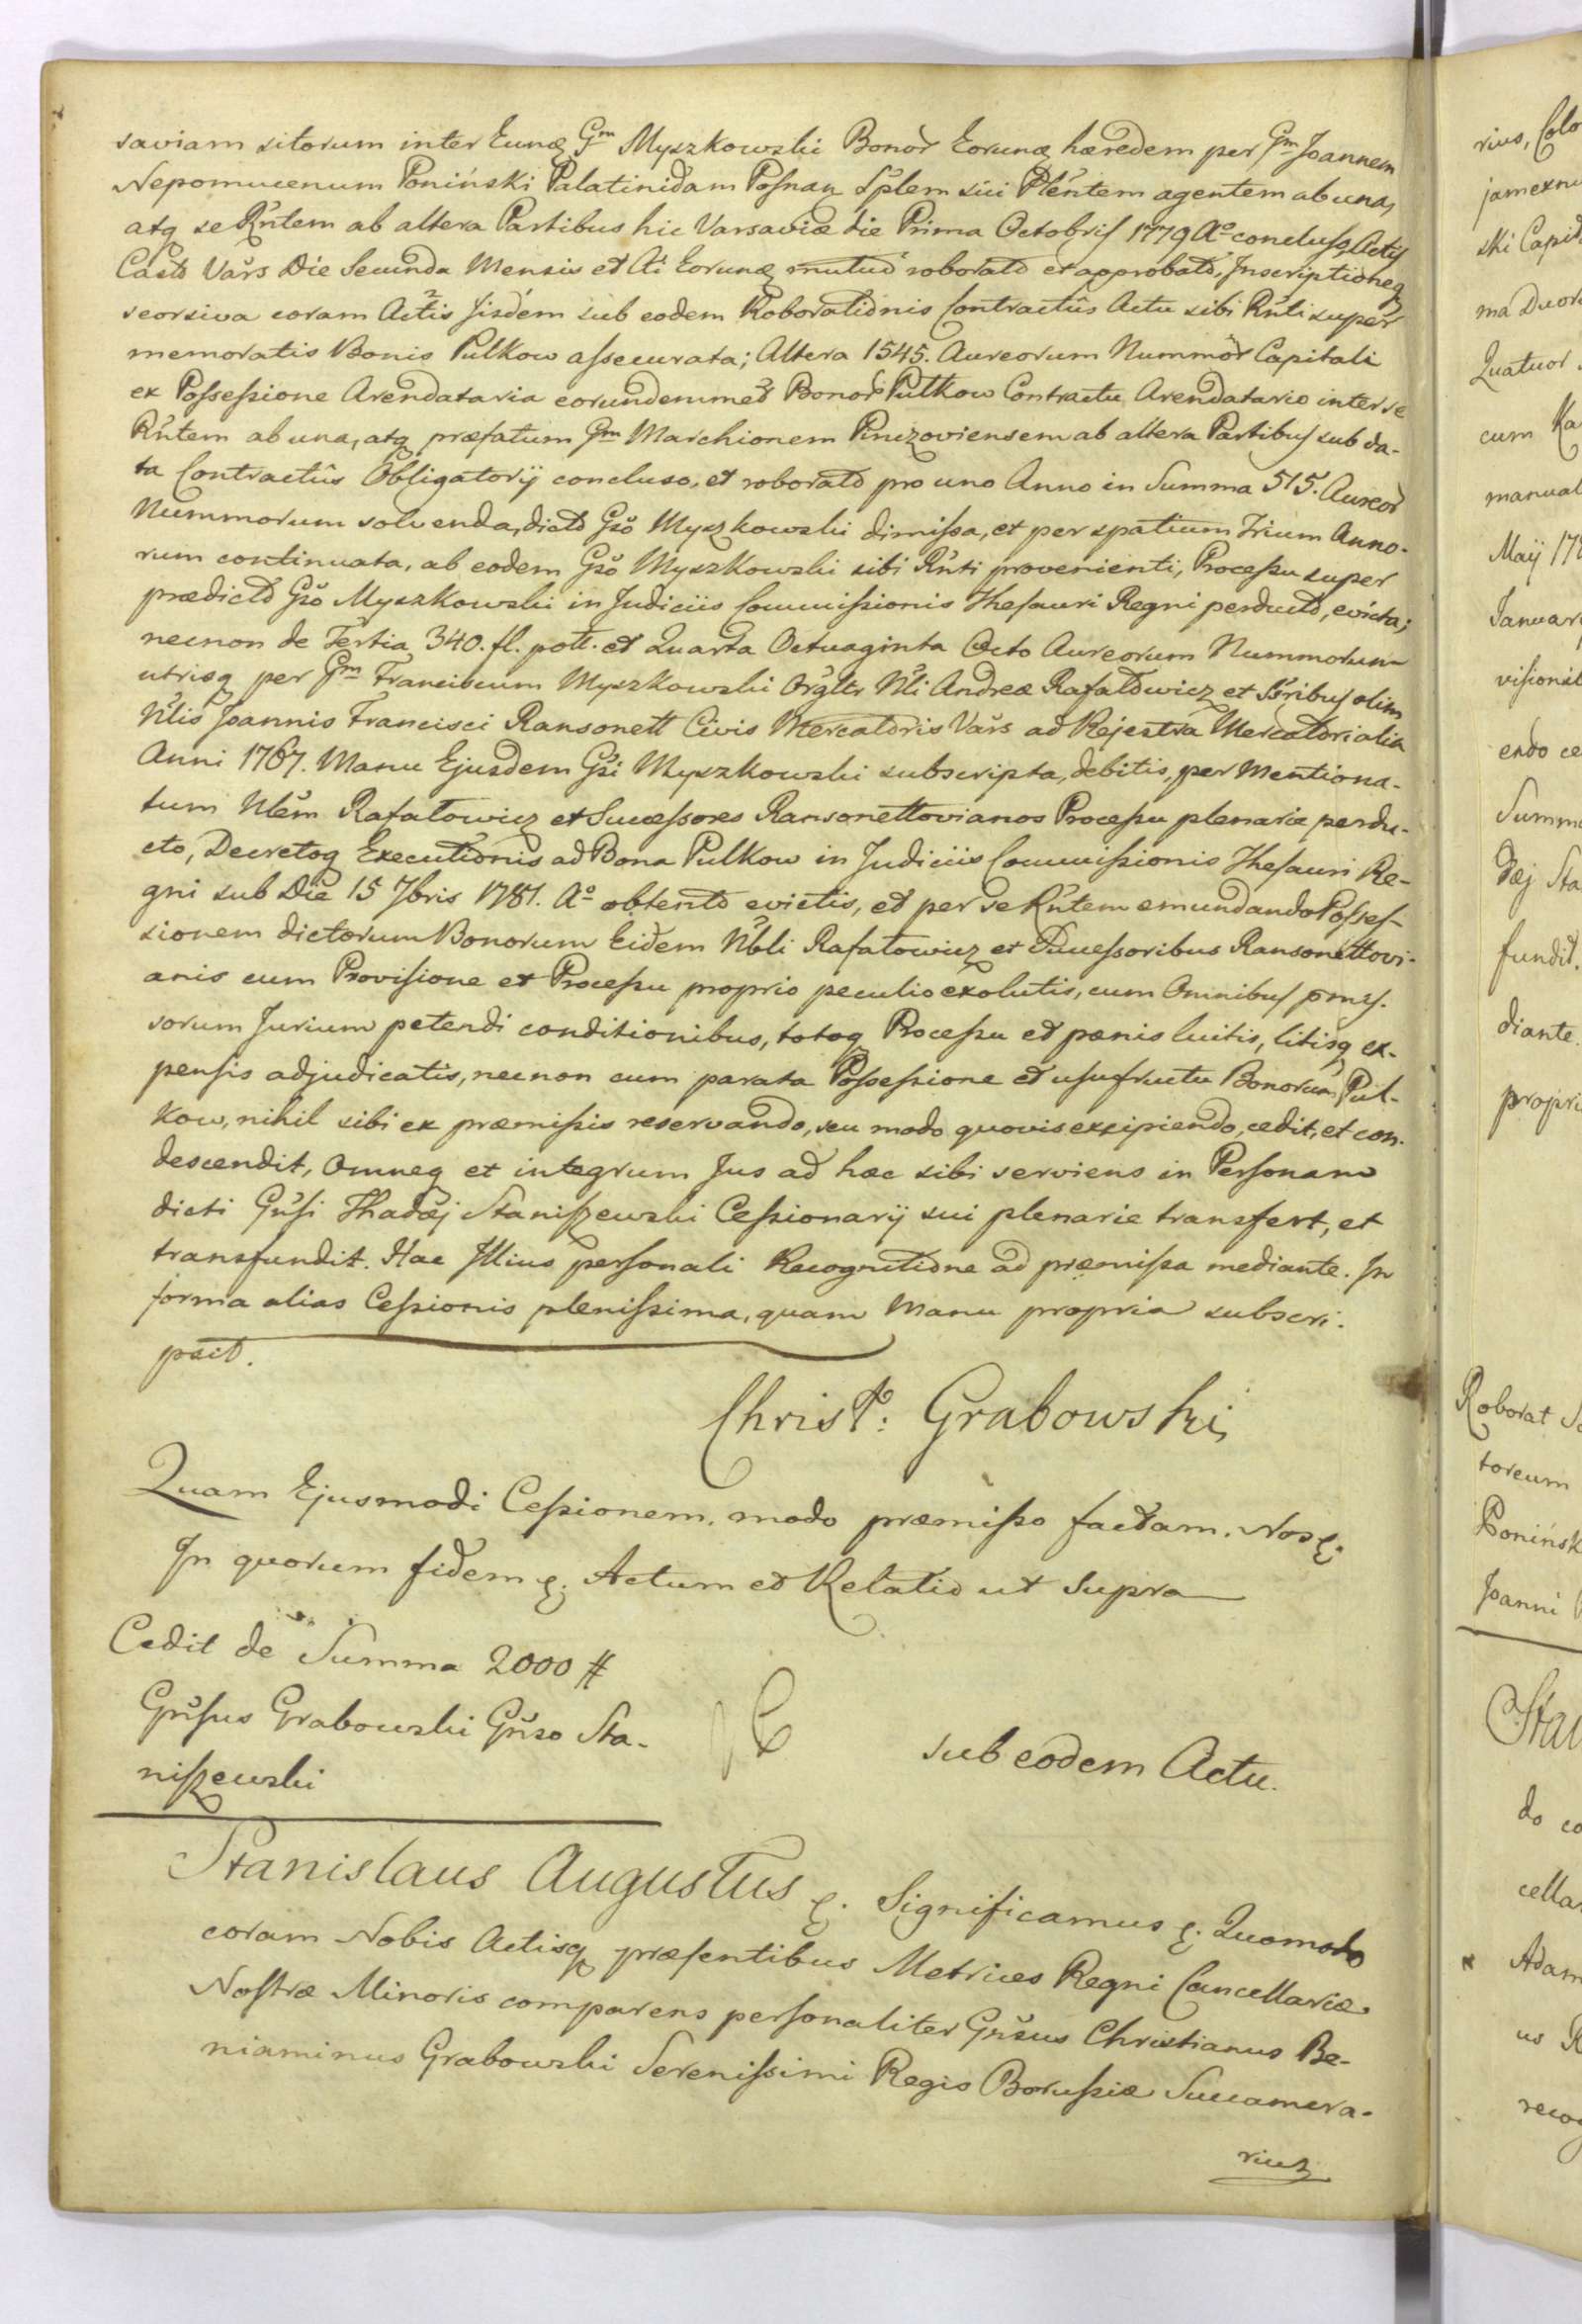 saviam sitorum inter Eunq Gm Myszkowski Bonor Eorunq hæredem per Gm Joannem
Nepomucenum Poniński Palatinidam Posnan Splem sui Plentem agentem ab una,
atq se Rntem ab altera Partibus hic Varsaviæ die Prima Octobris 1779 Ao concluso, Actis
Casto Vars Die Secunda Mensis et Ai Eorunq mutuo roborato et approbato, Inscriptioneq
seorsiva coram Actis Iisdem sub eodem Roborationis Contractûs Actu sibi Rnti super
memoratis Bonis Pulkow assecurata; Altera 1545. Aureorum Nummor Capitali
ex Possessione Arendataria eorundemmet Bonor Pulkow Contractu Arendatario inter se
Rntem ab una, atq præfatum Gm Marchionem Pinczoviensem ab altera Partibus sub da-
ta Contractûs Obligatorij concluso, et roborato pro uno Anno in Summa 515. Aureor
Nummorum solvenda, dicto Gso Myszkowski dimissa, et per spatium Trium Anno-
rum continuata, ab eodem Gso Myszkowski sibi Rnti provenienti, Processu super
prædicto Gso Myszkowski in Judiciis Commissionis Thesauri Regni perducto, evicta;
necnon de Tertia 340. fl. poll. et Quarta Octuaginta Octo Aureorum Nummorum
utrisq per Gm Franciscum Myszkowski Orgltr Nli Andreæ Rafałowicz et Sóribus olim
Nlis Joannis Francisci Ransonett Civis Mercatoris Vars ad Rejestra Mercatorialia
Anni 1767. Manu Ejusdem Gsi Myszkowski subscripta, debitis, per Mentiona-
tum Nlem Rafałowicz et Sucessores Ransonettovianos Processu plenarie perdu-
cto, Decretoq Executionis ad Bona Pulkow in Judiciis Commissionis Thesauri Re-
gni sub Die 15 7bris 1781. Ao obtento evictis, et per se Rntem emundando Posses-
sionem dictorum Bonorum Eidem Nbli Rafałowicz et Sucessoribus Ransonettovi-
anis cum Provisione et Processu proprio peculio exolutis, cum Omnibus pmis-
sorum Jurium petendi conditionibus, totoq Processu et pænis luitis, litisq ex-
pensis adjudicatis, necnon cum parata Possessione et usufructu Bonorum Pul-
kow, nihil sibi ex præmissis reservando, seu modo quovis excipiendo, cedit, et con-
descendit, Omneq et integrum Jus ad hæc sibi serviens in Personam
dicti Gnsi Thadæj Staniszewski Cessionarij sui plenarie transfert, et
transfundit. Hac Illius personali Recognitione ad præmissa mediante. In
forma alias Cessionis plenissima, quam Manu propria subscri-
psit.
Christ: Grabowski
Quam Ejusmodi Cessionem. modo præmisso factam. Nos &.
In quorum fidem &. Actum et Relatio ut supra
Cedit de Summa 2000 #
Gnsus Grabowski Gnso Sta-
niszewski
sub eodem Actu.
Stanislaus Augustus &. Significamus &. Quomodo
coram Nobis Actisq præsentibus Metrices Regni Cancellariæ
Nostræ Minoris comparens personaliter Gnsus Christianus Be-
niaminus Grabowski Serenissimi Regis Borussiæ Succamera-
rius
rius, Colo
jamexnu
ski Capit
ma Duor
Quatuor
cum Ka
manual
Maij 17
Januar
visional
endo ce
Summ
dæj Sta
fundit.
diante.
propri
Roborat
toreum
Ponińsk
Joanni
Stan
do co
cella
Adam
us R
recog